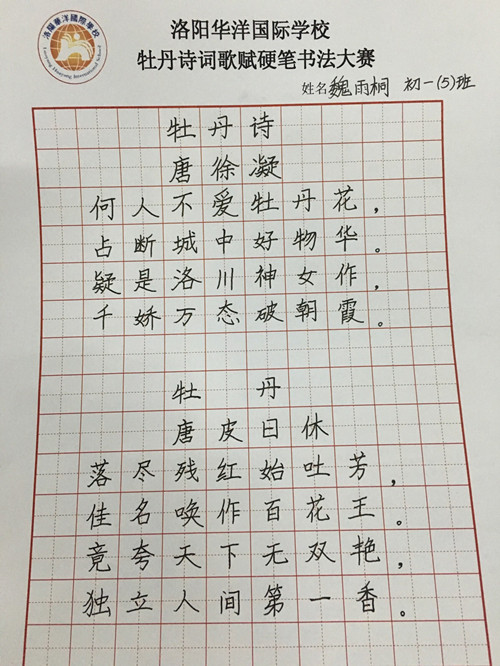 洛陽華洋國際學校
Luoyang Huayang International School
洛阳华洋国际学校
牡丹诗词歌赋硬笔书法大赛
姓名魏雨桐 初一(5)班
牡丹诗
唐徐凝
何人不爱牡丹花，
占断城中好物华。
疑是洛川神女作，
千娇万态破朝霞。
牡丹
唐皮日休
落尽残红始吐芳，
佳名唤作百花王。
竟夸天下无双艳，
独立人间第一香。